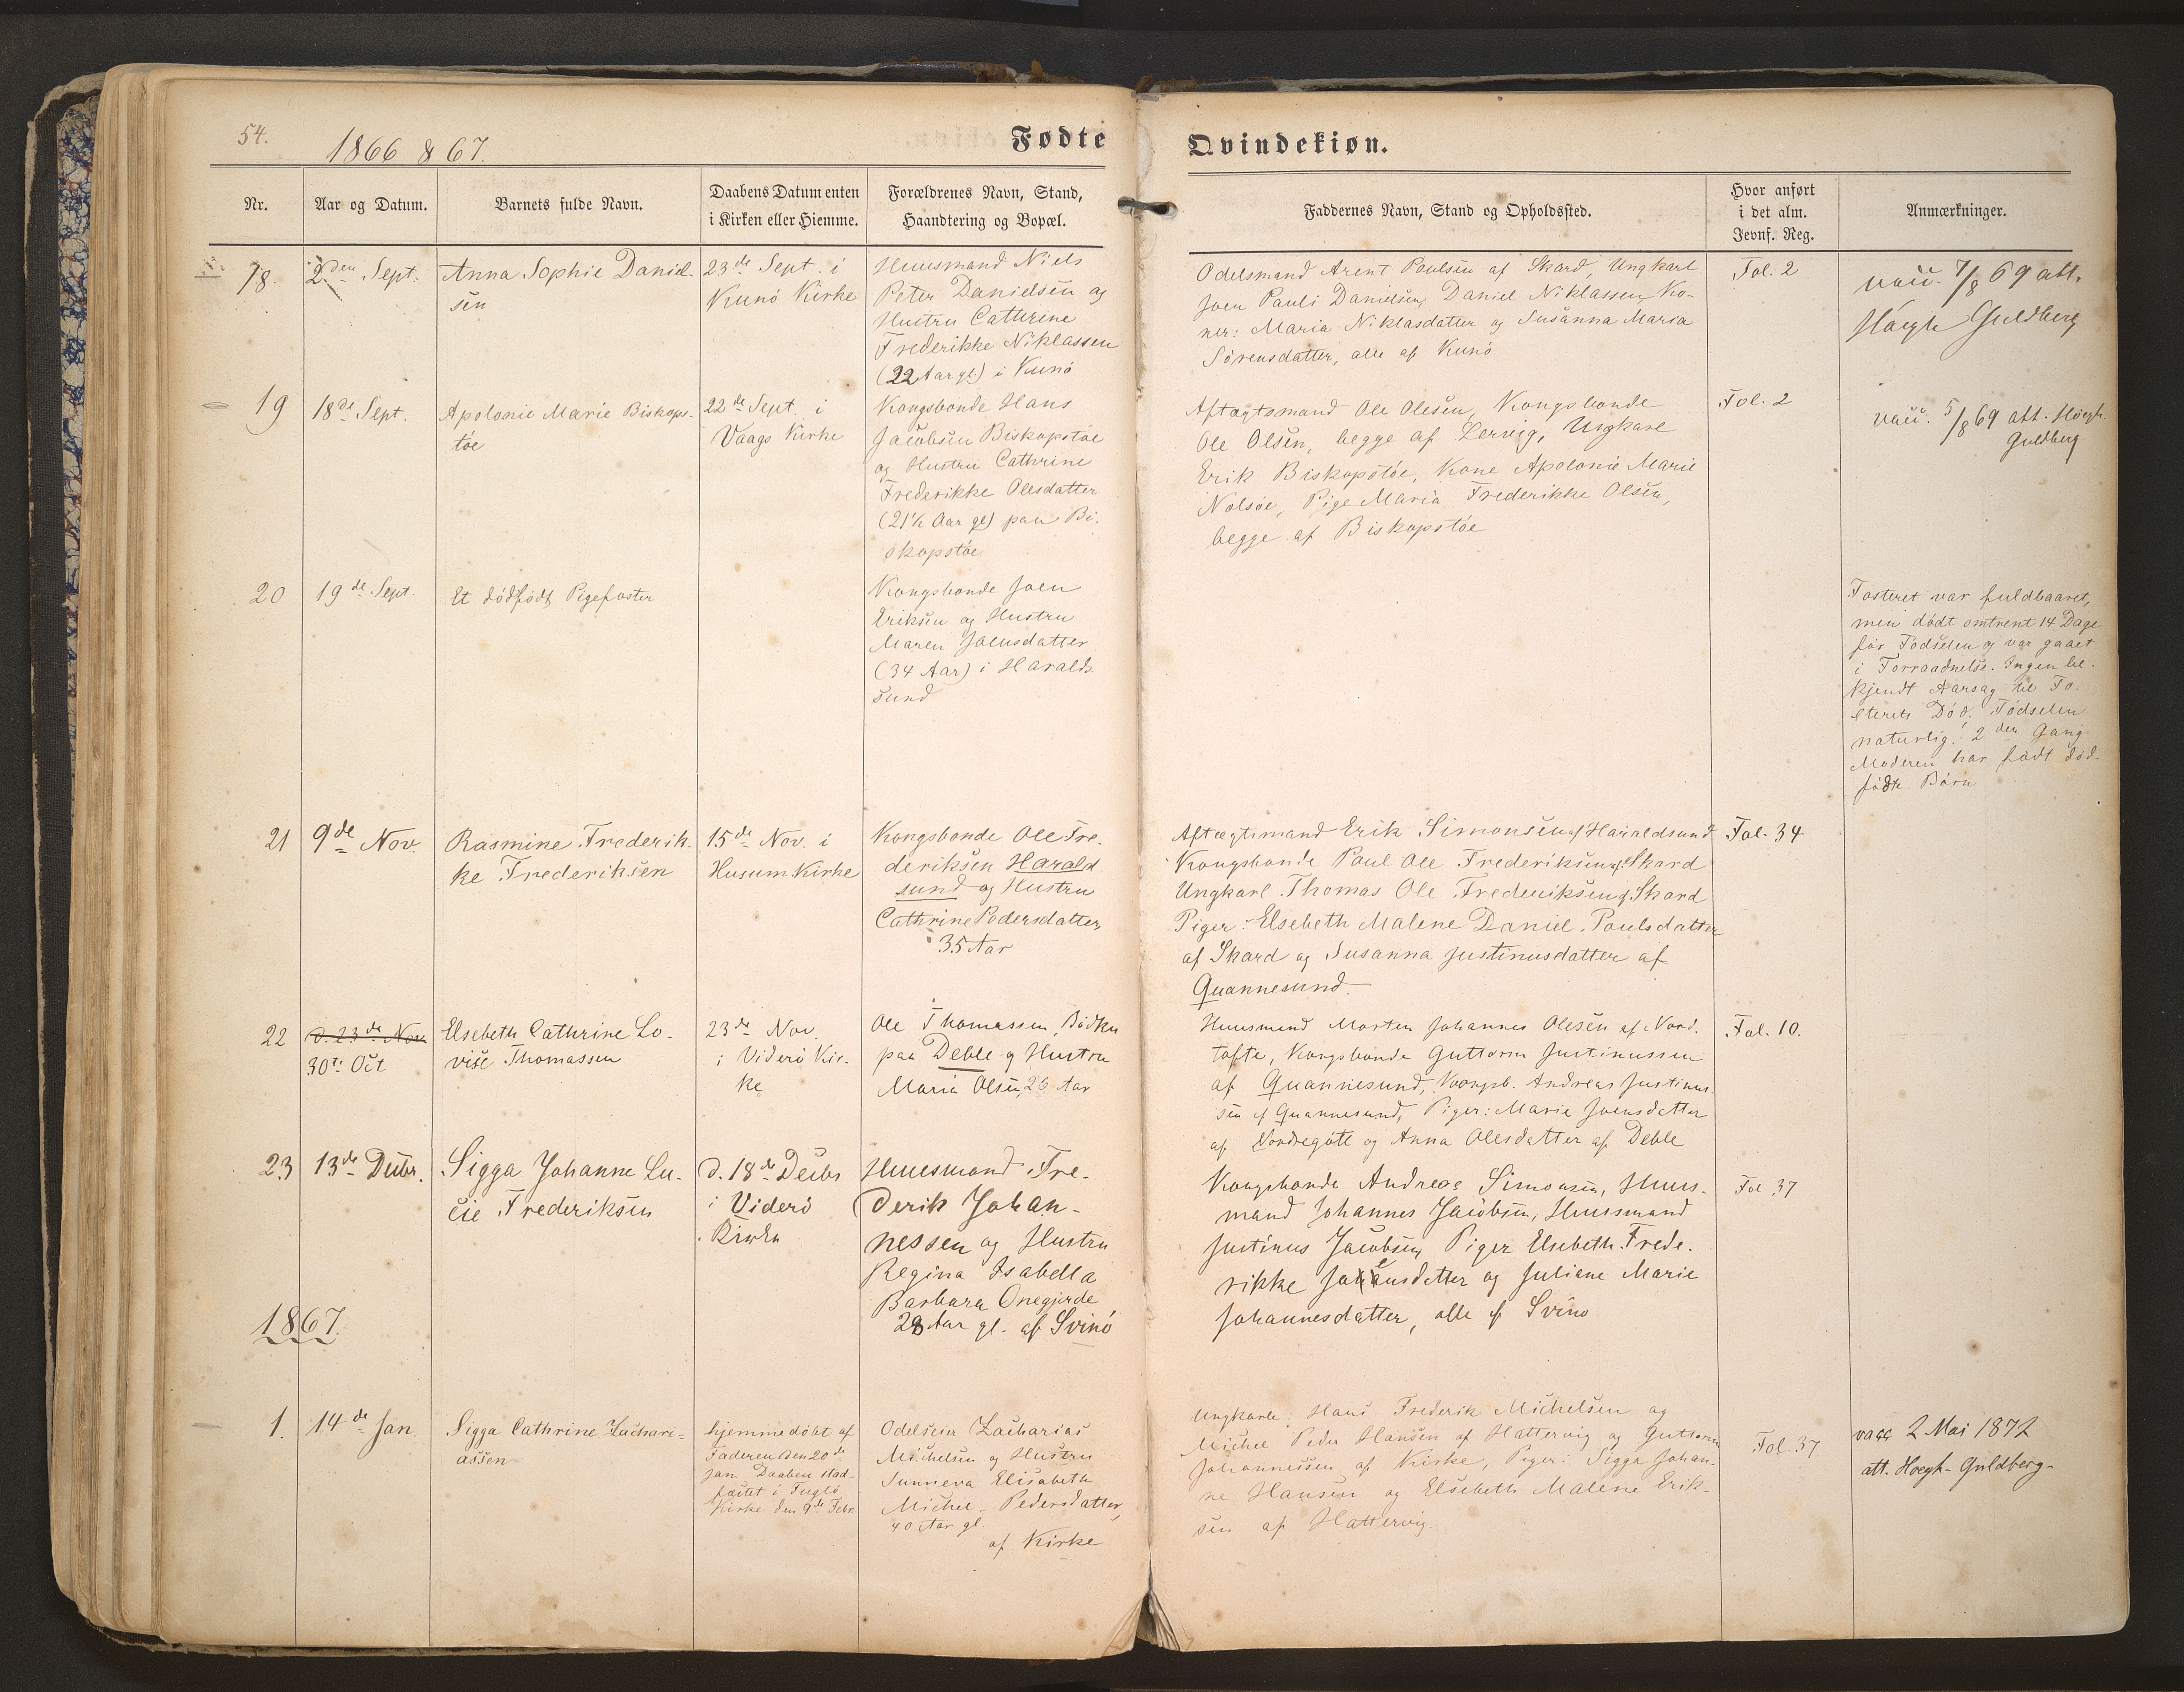 54.
1866 & 67.
Fødte
Qvindekiøn.
Nr.
Aar og Datum.
Barnets fulde Navn.
Daabens Datum enten
i Kirken eller Hiemme.
Forældrenes Navn, Stand,
Haandtering og Bopæl.
Faddernes Navn, Stand og Opholdssted.
Hvor anført
i det alm.
Jevnf. Reg.
Anmærkninger.
18.
2den Sept.
Anna Sophie Daniel-
sen
23de Sept. i
Kunö Kirke
Huusmand Niels
Peter Danielsen og
Hustru Cathrine
Frederikke Niklassen
(22 Aar gl.) i Kunö
Odelsmand Arent Poulsen af Skard, Ungkarl
Joen Pauli Danielsen, Daniel Niklassen, Ko-
ner: Maria Niklasdatter og Susanna Maria
Sörensdatter, alle af Kunö
Fol. 2
vacc. 7/8 69 att.
Höegh Guldberg
19
18de Sept.
Apolonie Marie Biskops-
töe
22de Sept. i
Vaags Kirke
Kongsbonde Hans
Jacobsen Biskopstöe
og Hustru Cathrine
Frederikke Olesdatter
(21½ Aar gl) paa Bi-
skopstöe
Aftægtsmand Ole Olesen, Kongsbonde
Ole Olsen, begge af Lervig, Ungkarl
Erik Biskopstöe, Kone Apolonie Marie
Nolsöe, Pige Maria Frederikke Olsen,
begge af Biskopstöe
Fol. 2
vacc. 5/8 69 att. Höegh
Guldberg
20
19de Sept.
Et dödfödt Pigefoster
Kongsbonde Joen
Eriksen og Hustru
Maren Joensdatter
(34 Aar) i Haralds-
sund
Fosteret var fuldbaaret,
men dödt omtrent 14 Dage
för Födselen og var gaaet
i Forraadnelse. Ingen be-
kjendt Aarsag til Fo-
sterets Död. Födselen
naturlig. 2den Gang
Moderen har födt död-
födte Börn
21
9de Nov.
Rasmine Frederik-
ke Frederiksen
15de Nov. i
Husum Kirke
Kongsbonde Ole Fre-
deriksen Harald
sund og Hustru
Cathrine Pedersdatter
35 Aar
Aftægtsmand Erik Simonsen af Haraldsund
Kongsbonde Paul Ole Frederiksen af Skard
Ungkarl Thomas Ole Frederiksen af Skard
Piger Elsebeth Malene Daniel Poulsdatter
af Skard og Susanna Justinusdatter af
Quannesund
Fol. 34
22
d. 23de Nov.
30te Oct
Elsebeth Cathrine Lo-
vise Thomassen
23de Nov.
i Viderö Kir-
ke
Ole Thomassen, Bödker
paa Deble og Hustru
Maria Olsen, 26 Aar
Huusmand Morten Johannes Olesen af Nord-
tofte, Kongsbonde Guttorm Justinussen
af Quannesund, Kongsb. Andreas Justinus-
sen af Quannesund, Piger: Marie Joensdatter
af Nordregöte og Anna Olesdatter af Deble
Fol. 10.
23
13de Decbr.
Sigga Johanne Lu-
cie Frederiksen
d. 18de Decbr
i Viderö
Kirke
Huusmand Fre-
derik Johan-
nessen og Hustru
Regina Isabella
Barbara Onegjerde
28 Aar gl. af Svinö
Kongsbonde Andreas Simonsen, Huus-
mand Johannes Jacobsen, Huusmand
Justinus Jacobsen Piger Elsebeth Frede-
rikke Joensdatter og Juliane Marie
Johannesdatter, alle af Svinö
Fol 37
1867.
1.
14de Jan
Sigga Cathrine Zachari-
assen
hjemmedöbt af
Faderen den 20de
Jan. Daaben stad-
fæstet i Fuglö
Kirke den 9de Febr.
Odelseier Zacharias
Michelsen og Hustru
Sunneva Elisabeth
Michel-Pedersdatter,
40 Aar gl.
af Kirke
Ungkarle: Hans Frederik Michelsen og
Michel Peder Hansen af Hattervig og Guttorm
Johannessen af Kirke, Piger: Sigga Johan-
ne Hansen og Elsebeth Malene Erik-
sen af Hattervig
Fol. 37
vacc 2 Mai 1872
att. Hoegh-Guldberg-